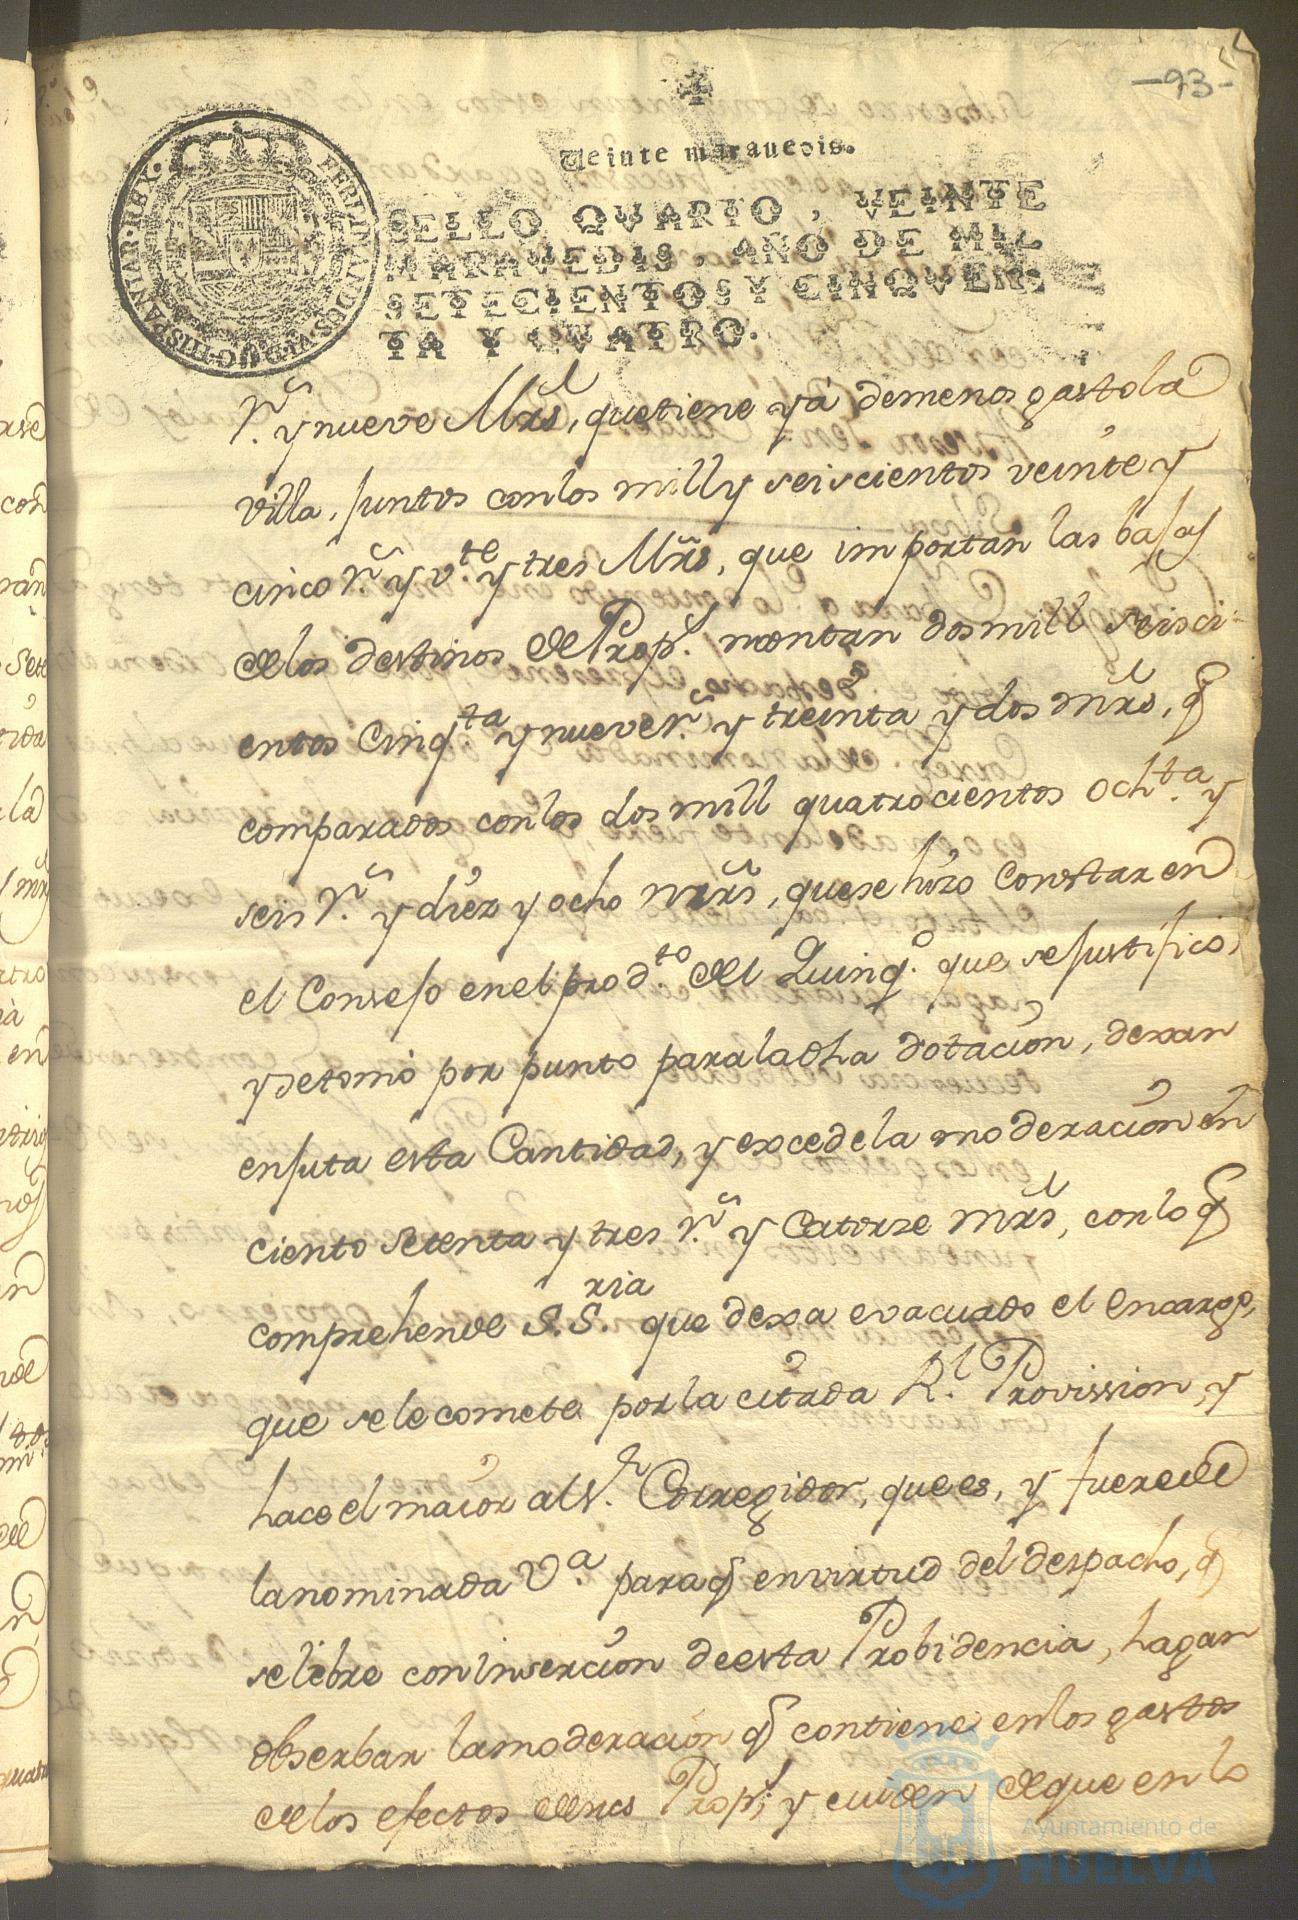 -93-
Veinte marauedis.
SELLO QVARTO, VEINTE
MARAVEDIS, AÑO DE MIL
SETECIENTOS Y CINQVEN-
TA Y QVATRO.
FERDINANDUS·VI·D·G·HISPANIAR·REX·
r.s y nueve Mrs, que tiene ya demenos gasto la
villa, juntos con los mill y seiscientos veinte y
cinco r.s y v.te y tres Mrs, que importan las bajas
de los destinos de Prop.s montan dos mill seisci-
entos Cinq.ta y nueve r.s y treinta y dos mrs, q
comparados con los dos mill quatrocientos Och.ta y
seis r.s y diez y ocho mrs, que se hizo Constar en
el Consejo en el prod.to del Quinq.o que se justificó,
y se tomó por punto para la dha dotacion, dexan
enjuta esta Cantidad, y excede la moderacion en
ciento setenta y tres r.s y Catorze mrs, con lo q
comprehende S.S.ria que dexa evacuado el encargo,
que se le comete por la citada R.l Provission, y
hace el maior al S.r Corregidor, que es, y fuere de
la nominada V.a para q en virtud del despacho, q
se libre con Insercion de esta Probidencia, hagan
obserbar la moderacion q contiene en los gastos
de los efectos de sus Prop.s y cuiden de que en lo
Ayuntamiento de
HUELVA